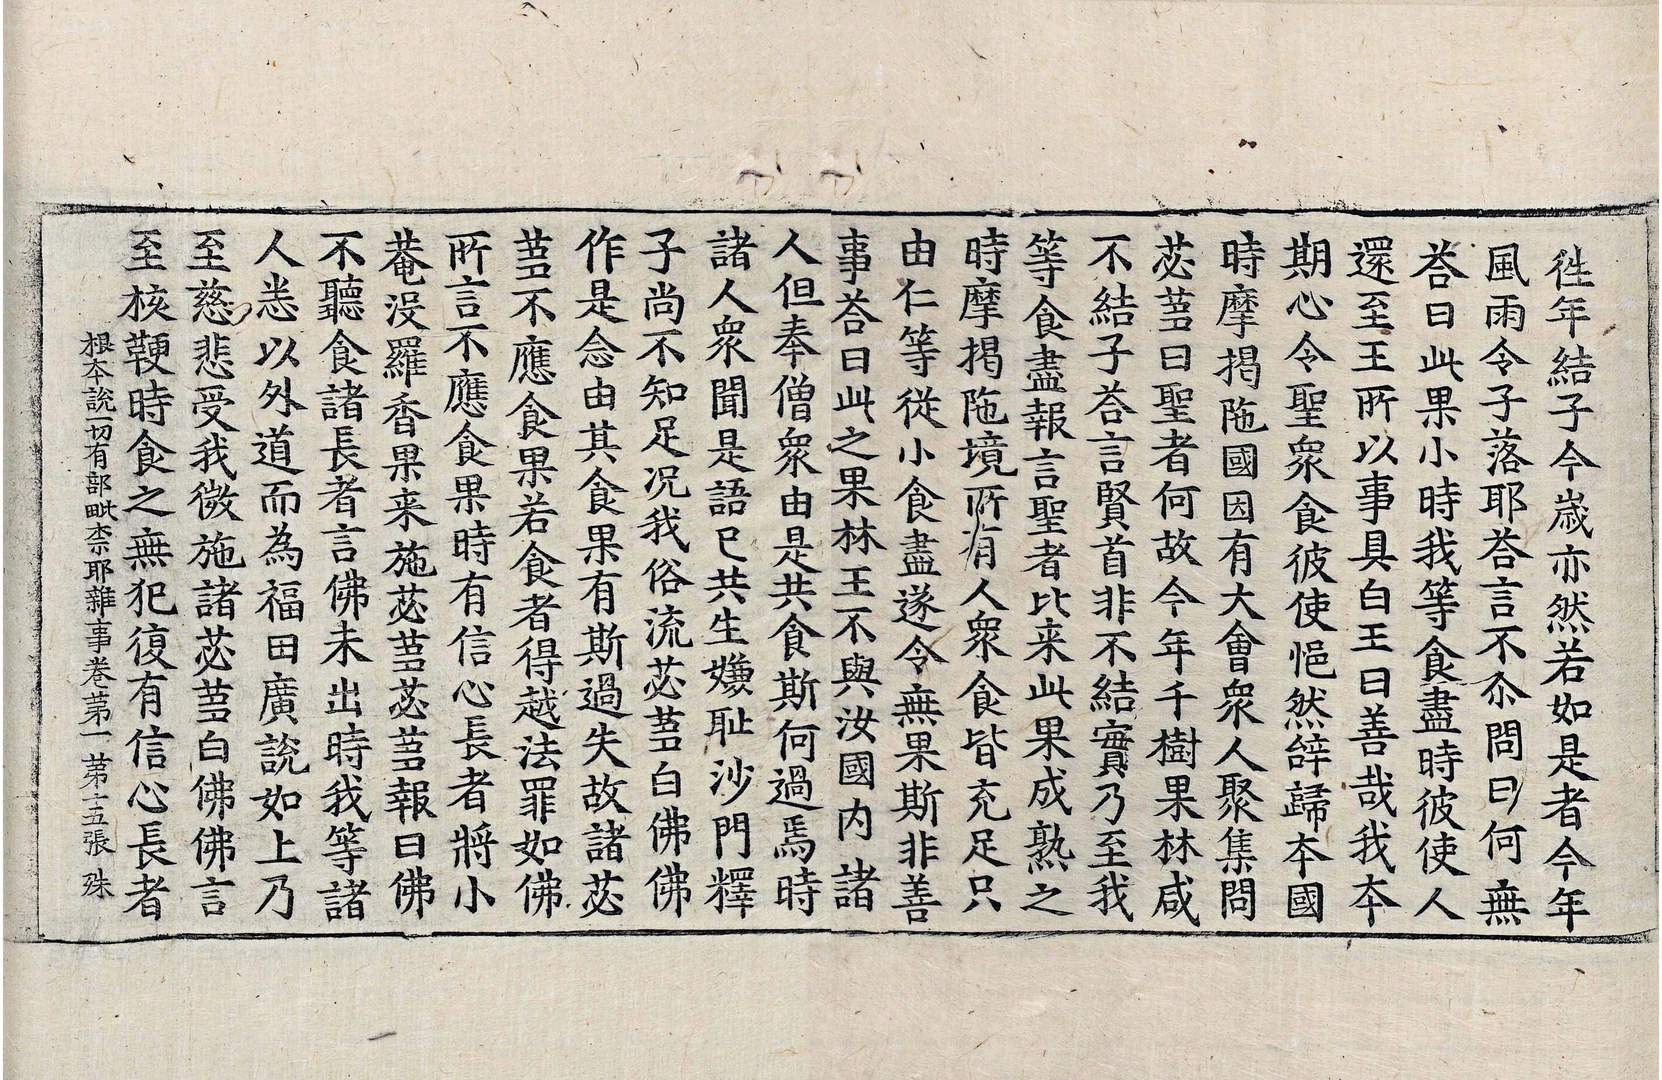 徃年結子今歳亦然若如是者今年
風雨令子落耶荅言不尒問曰何無
荅曰此果小時我等食盡時彼使人
還至王所以事具白王曰善哉我本
期心令聖衆食彼使悒然辝歸本國
時摩揭陁國因有大會衆人聚集問
苾蒭曰聖者何故今年千樹果林咸
不結子荅言賢首非不結實乃至我
等食盡報言聖者比来此果成熟之
時摩揭陁境所有人衆食皆充足只
由仁等從小食盡遂令無果斯非善
事荅曰此之果林王不與汝國内諸
人但奉僧衆由是共食斯何過焉時
諸人衆聞是語已共生嫌耻沙門釋
子尚不知足况我俗流苾蒭白佛佛
作是念由其食果有斯過失故諸苾
蒭不應食果若食者得越法罪如佛
所言不應食果時有信心長者將小
菴没羅香果来施苾蒭苾蒭報曰佛
不聽食諸長者言佛未出時我等諸
人悉以外道而為福田廣說如上乃
至慈悲受我微施諸苾蒭白佛佛言
至核鞕時食之無犯復有信心長者
根本說一切有部毗柰耶雜事卷第一 第十五張 殊